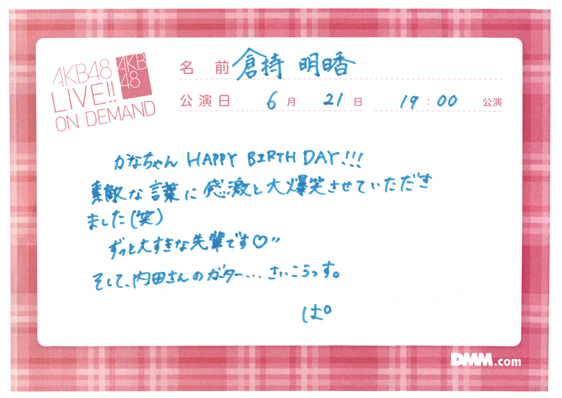 AKB48
LIVE!!
ON DEMAND
AKB
48
名 前 倉持 明日香
公演日 6 月 21 日 19 : 00 公演
かなちゃん HAPPY BIRTH DAY!!!
素敵な言葉に感激と大爆笑させていただき
ました(笑)
ずっと大すきな先輩です♡”
そして、内田さんのガーター…さいこうっす。
ぱ。
DMM.com